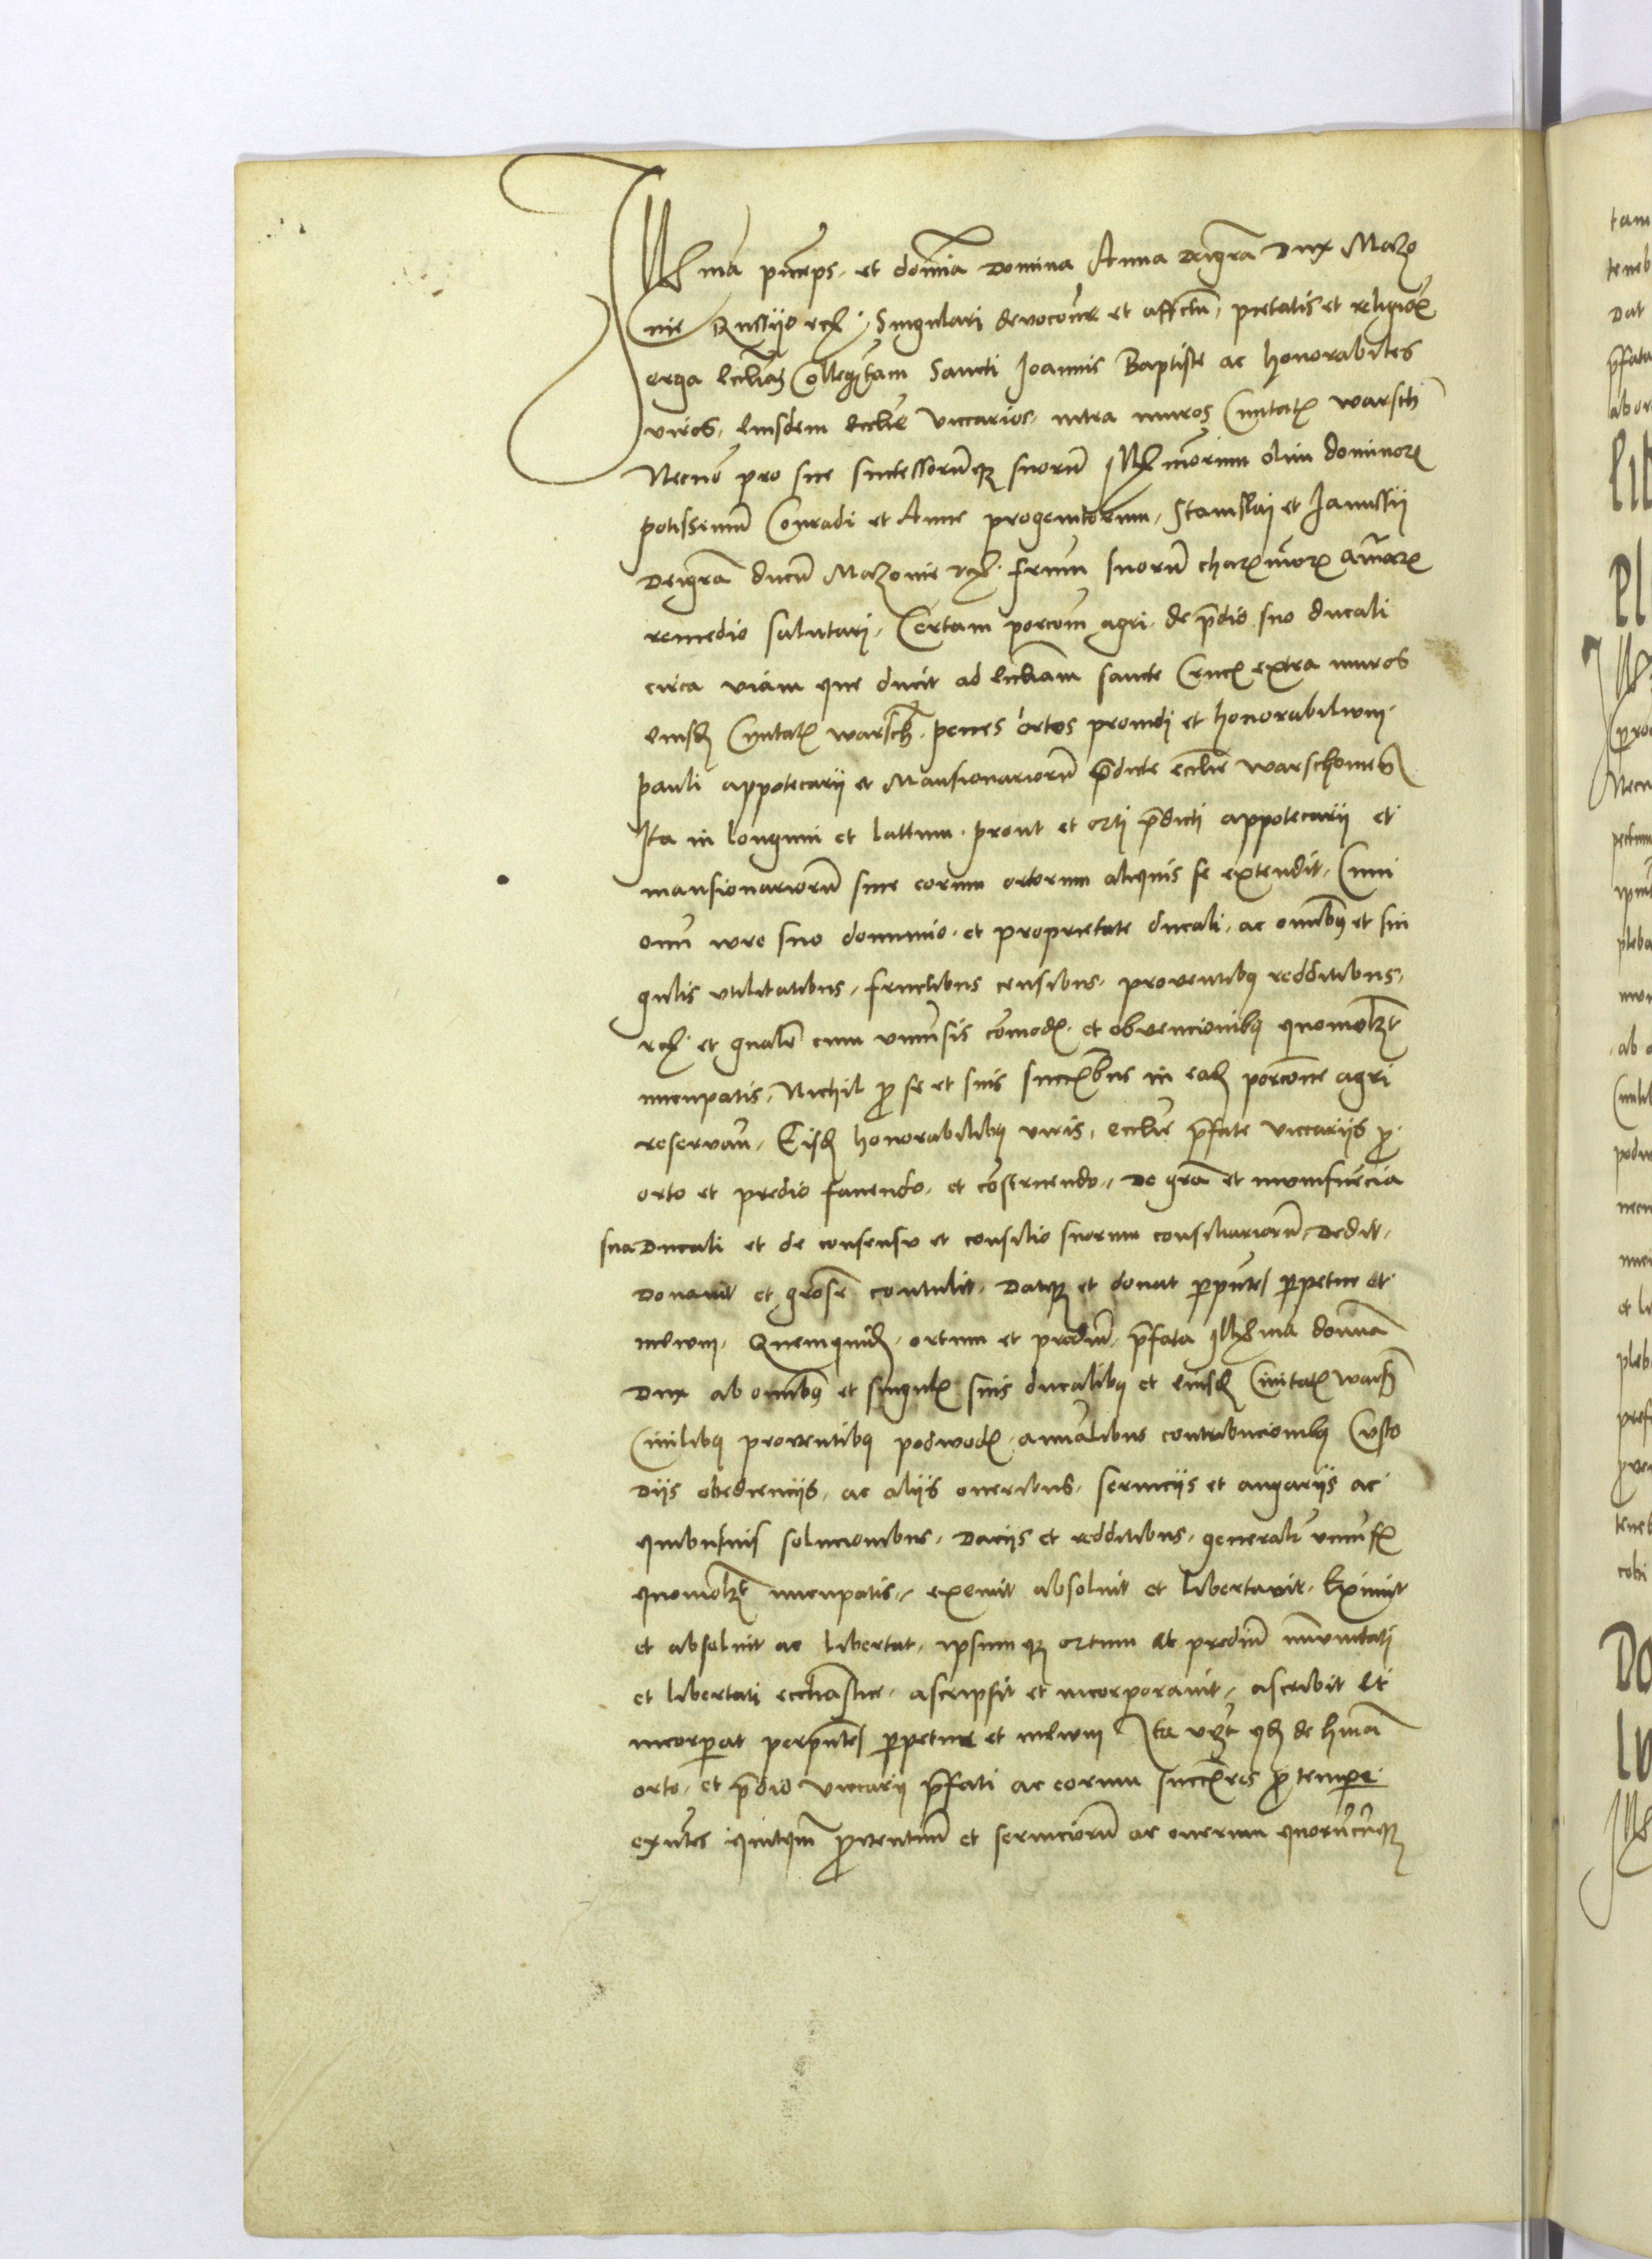 Illma princeps et domina Domina Anna deigra Dux Mazo
nie Russyeque etc Singulari devocione et affectu, pietatis et religionis
erga ecclesiam Collegiatam Sancti Joannis Baptiste ac honorabiles
viros, eiusdem ecclesie viccarios, intra muros Civitatis warsch
Necno pro sue successorumque suorum Illmorum olim dominorum
potissimum Conradi et Anne progenitorum, Stanislaj et Janussij
Deigra ducum Mazonie etc fratrum suorum charissimorum animarum
remedio salutari, Certam porcionem agri de predio suo ducali
circa viam que ducit ad ecclesiam sancte Crucis extra muros
eiusdem Civitatis warsch penes ortos providi et honorabilium
pauli appotecarij et Mansionariorum predicte ecclesie warschoviens
Ita in longum et lattum prout et orti predicti appotecarij et
mansionariorum sive eorum ortorum aliquis se extendit, Cum
omni iure suo dominio et proprietate ducali, ac omnibus et sin
gulis utilitatibus, fructibus censibus, proventibus redditibus,
etc et generaliter cum universis comodis et obvencionibus quomodolibet
nuncupatis, Nichil pro se et suis successoribus in eadem porcione agri
reservan, Eisdem honorabilibus viris, ecclesie prefate viccarijs pro
orto et predio favendo, et construendo, De gracia et munificencia
sua Ducali et de consensu et consilio suorum consiliariorum Dedit,
Donavit et graciose contulit, Datque et donat per presentes perpetue et
in evum, Quemquidem ortum et predium prefata Illma domina
Dux ab omnibus et singulis suis ducalibus et eiusdem Civitatis warsch
Civilibus proventibus podwodis annalibus contribucionibus Custo
dijs obediencijs, ac alijs oneribus, servicijs et angarijs ac
quibusvis solucionibus, Dacijs et redditibus, generaliter universis
quomodolibet nuncupatis, exemit absolvit et libertavit, Eximit
et absolvit ac libertat, ipsumque ortum et predium immunitati
et libertati ecclesiastice, ascripsit et incorporavit, ascribit et
incorporat per presentes perpetue et in evum Ita videlicet quod de huiusmodi
orto, et predio viccarij prefati ac eorum successores pro tempore
existentes quicquam proventuum et serviciorum ac onerum quorumcumque